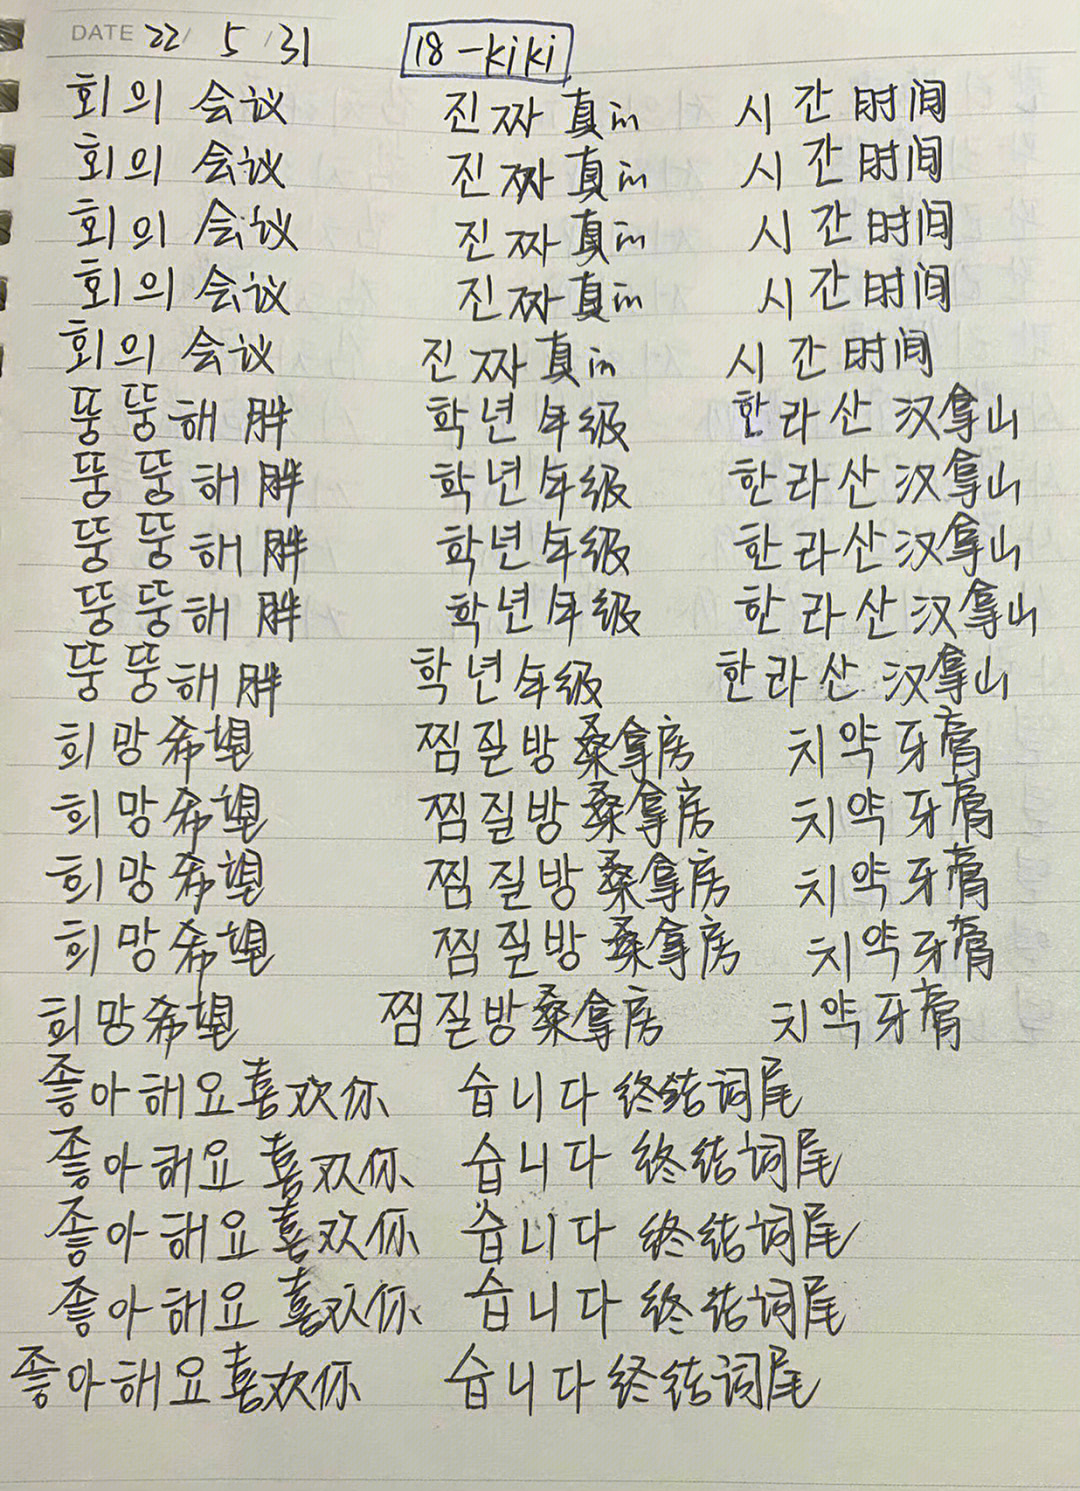 DATE 22/ 5 /31 18-kiki
회의 会议 진짜 真in 시간 时间
회의 会议 진짜 真in 시간 时间
회의 会议 진짜 真in 시간 时间
회의 会议 진짜 真in 시간 时间
회의 会议 진짜 真in 시간 时间
뚱뚱해 胖 학년 年级 한라산 汉拿山
뚱뚱해 胖 학년 年级 한라산 汉拿山
뚱뚱해 胖 학년 年级 한라산 汉拿山
뚱뚱해 胖 학년 年级 한라산 汉拿山
뚱뚱해 胖 학년 年级 한라산 汉拿山
희망 希望 찜질방 桑拿房 치약 牙膏
희망 希望 찜질방 桑拿房 치약 牙膏
희망 希望 찜질방 桑拿房 치약 牙膏
희망 希望 찜질방 桑拿房 치약 牙膏
희망 希望 찜질방 桑拿房 치약 牙膏
좋아해요 喜欢你 습니다 终结词尾
좋아해요 喜欢你 습니다 终结词尾
좋아해요 喜欢你 습니다 终结词尾
좋아해요 喜欢你 습니다 终结词尾
좋아해요 喜欢你 습니다 终结词尾